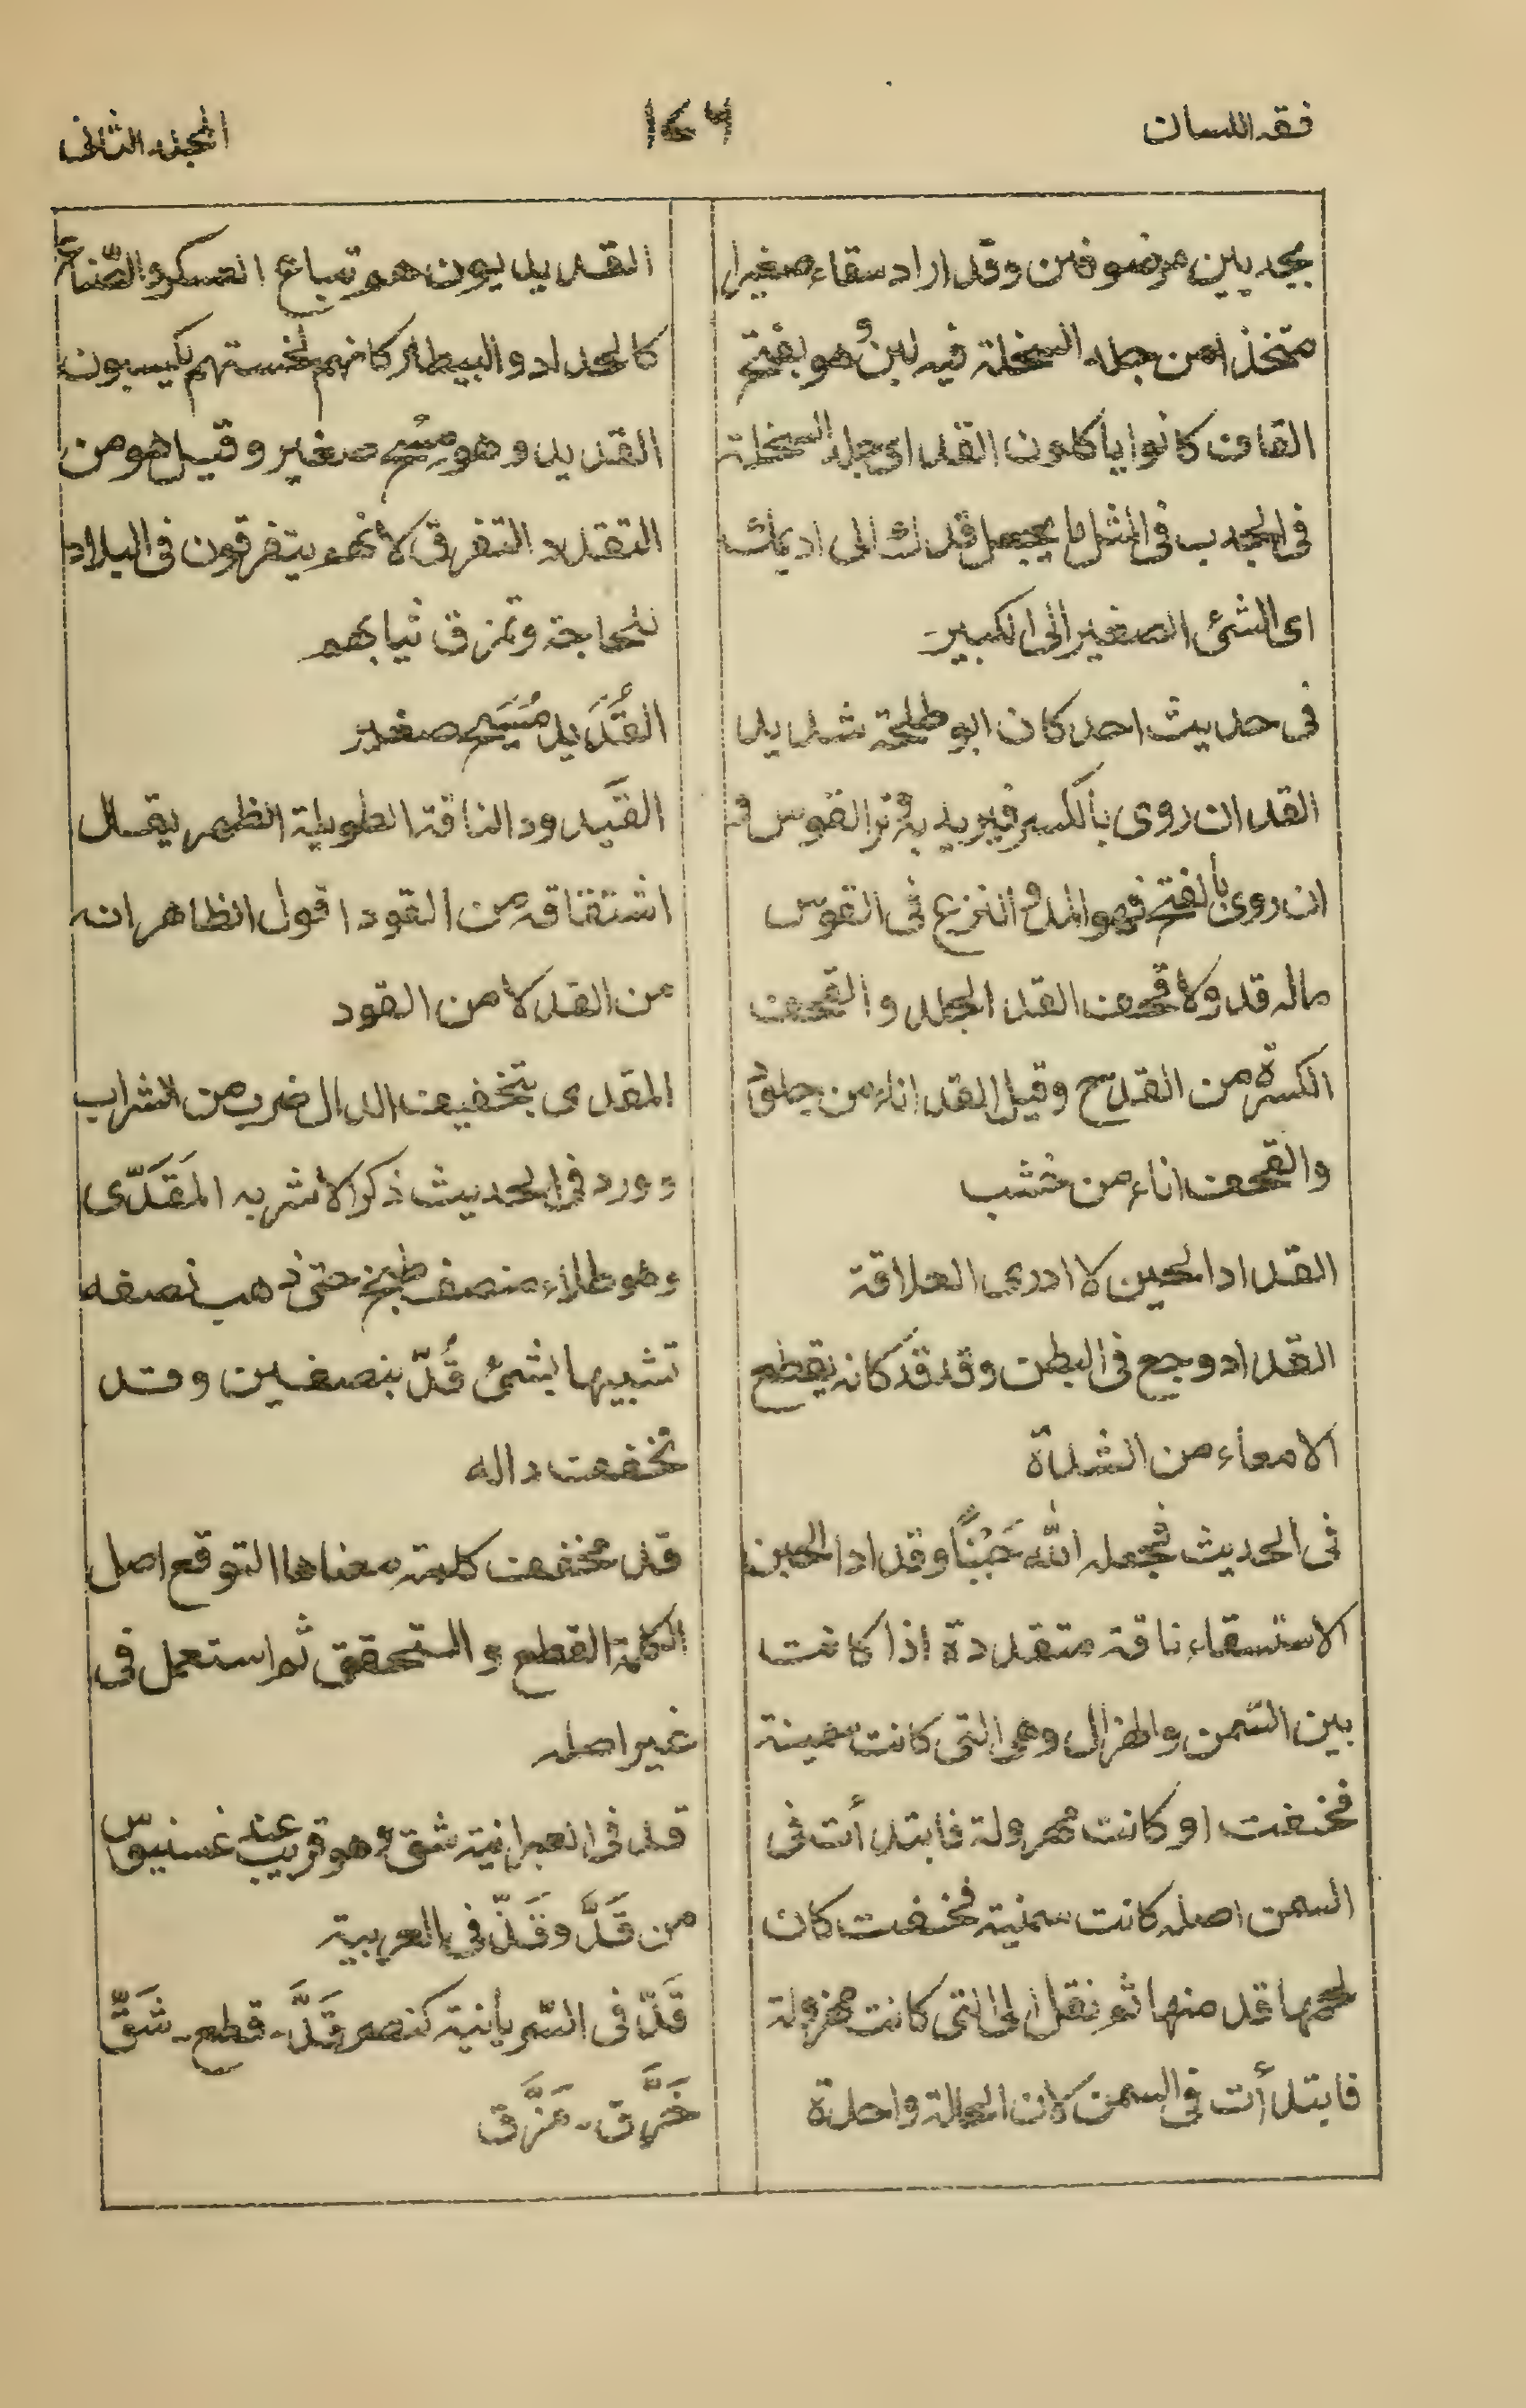 فقه اللسان
١٤٦
الجزء الثانى
بجديين مرضوفين وقد اراد سقاء صغيرا
متخذا من جلد السخلة فيه لبن وهو بفتح
القاف كانوا ياكلون القد اى جلد السخلة
فى الجدب فى المثل ما يجعل قدك الى اديمك
اى الشئ الصغير الى الكبير
فى حديث احد كان ابو طلحة شديد
القد ان روى بالكسر فيريد به وتر القوس و
ان روى بالفتح فهو المد و النزع فى القوس
ماله قد ولا قحف القد الجلد و القحف
الكسرة من القدح وقيل القد اناء من جلود
والقحف اناء من خشب
القداد الحين لا ادرى العلاقة
القداد وجع فى البطن وقد قدّ كانه يقطع
الامعاء من الشدة
فى الحديث فجعله الله حَبَنًا و قدادا الحبن
الاستسقاء ناقة متقددة اذا كانت
بين السّمن والهزال وهى التى كانت سمينة
فخفت او كانت مهزولة فابتدأت فى
السمن اصله كانت سمنية فخفت كان
لحمها قد منها ثم نقل الى التى كانت مهزولة
فابتدأت فى السمن كان الحالة واحدة
القديديون هم تباع العسكر والصّناع
كالحداد و البيطار كانهم لخستهم يكسبون
القديد و هو مِسْح صغير و قيل هو من
التقدد التفرق لانهم يتفرقون فى البلاد
للحاجة و تمزق ثيابهم
القُدَيد مُسَيح صغير
القَيدود الناقة الطويلة الظهر يقال
اشتقاقه من القود اقول الظاهر انه
من القد لا من القود
المقدى بتخفيف الدال ضرب من الشراب
وورد فى الحديث ذكر الاشربه المَقَدّى
وهو طلاء منصف طبخ حتى ذهب نصفه
تشبيها بشئ قُدّ بنصفين وقد
تخفف داله
قد مخفف كلمة معناها التوقع اصل
الكلمة القطع و التحقق ثم استعمل فى
غير اصله
قد فى العبرانية شق و هو قريب عند غسنيوس
من قَدَّ و قَذّ فى العربية
قَدّ فى السّريانية كنصر قَدَّ ـ قطع ـ شَقَّ
خَرَّق ـ مَزَّق